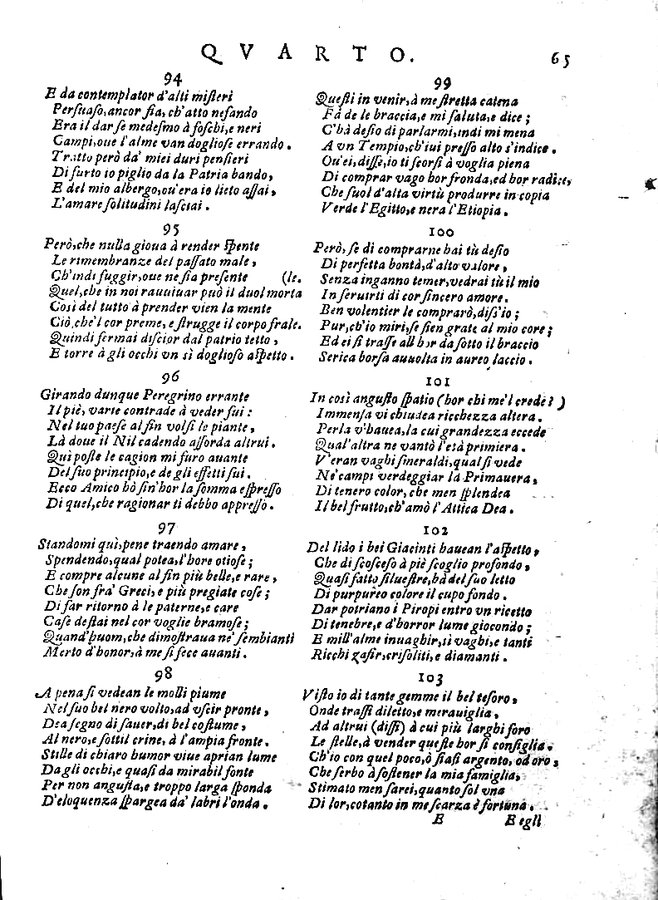 QVARTO. 65
94
E da contemplator d'alti misteri
Persuaso, ancor sia, ch'atto nefando
Era il dar se medesmo à foschi, e neri
Campi, oue l'alme van dogliose errando.
Tratto però da' miei duri pensieri
Di furto io piglio da la Patria bando,
E del mio albergo, ou'era io lieto assai,
L'amare solitudini lasciai.
95
Però, che nulla gioua à render spente
Le rimembranze del passato male,
Ch'indi fuggir, oue ne sia presente (le.
Quel, che in noi rauuiuar può il duol morta
Così del tutto à prender vien la mente
Ciò, che'l cor preme, e strugge il corpo frale.
Quindi fermai discior dal patrio tetto,
E torre à gli occhi vn sì doglioso aspetto.
96
Girando dunque Peregrino errante
Il piè, varie contrade à veder fui:
Nel tuo paese al fin volsi le piante,
Là doue il Nil cadendo assorda altrui.
Quì poste le cagion mi furo auante
Del suo principio, e de gli effetti sui.
Ecco Amico hò fin'hor la somma espresso
Di quel, che ragionar ti debbo appresso.
97
Standomi quì, pene traendo amare,
Spendendo, qual potea, l'hore otiose;
E compre alcune al fin più belle, e rare,
Che son frà Greci, e più pregiate cose;
Di far ritorno à le paterne, e care
Case destai nel cor voglie bramose;
Quand'huom, che dimostraua ne' sembianti
Merto d'honor, à me si fece auanti.
98
A pena si vedean le molli piume
Nel suo bel nero volto, ad vscir pronte,
Dea segno di sauer, di bel costume,
Al nero, e sottil crine, à l'ampia fronte.
Stille di chiaro humor viue aprian lume
Da gli occhi, e quasi da mirabil fonte
Per non angusta, e troppo larga sponda
D'eloquenza spargea da' labri l'onda.
99
Questi in venir, à me stretta catena
Fà de le braccia, e mi saluta, e dice;
C'hà desio di parlarmi, indi mi mena
A vn Tempio, ch'iui presso alto s'indice.
Qu'ei, disse, io ti scorsi à voglia piena
Di comprar vago hor fronda, ed hor radice,
Che suol d'alta virtù produrre in copia
Verde l'Egitto, e nera l'Etiopia.
100
Però, se di comprarne hai tù desio
Di perfetta bontà, d'alto valore,
Senza inganno temer, vedrai tù il mio
In seruirti di cor sincero amore.
Ben volentier le comprarò, diss'io;
Pur, ch'io miri, se sien grate al mio core;
Ed ei si trasse all'hor da sotto il braccio
Serica borsa auuolta in aureo laccio.
101
In così angusto spatio (hor chi me'l crede?)
Immensa vi chiudea ricchezza altera.
Perla v'hauea, la cui grandezza eccede
Qual'altra ne vantò l'età primiera.
V'eran vaghi smeraldi, qual si vede
Ne' campi verdeggiar la Primauera,
Di tenero color, che men splendea
Il bel frutto, ch'amò l'Attica Dea.
102
Del lido i bei Giacinti hauean l'aspetto,
Che di scosceso à piè scoglio profondo,
Quasi fatto siluestre, hà del suo letto
Di purpureo colore il cupo fondo.
Dar potriano i Piropi entro vn ricetto
Di tenebre, e d'horror lume giocondo;
E mill'alme inuaghir, sì vaghi, e tanti
Ricchi zafir, crisoliti, e diamanti.
103
Visto io di tante gemme il bel tesoro,
Onde trassi diletto, e merauiglia,
Ad altrui (dissi) à cui più larghi foro
Le stelle, à vender queste hor si consiglia.
Ch'io con quel poco, ò siasi argento, od oro,
Che serbo à sostener la mia famiglia,
Stimato men sarei, quanto sol vna
Di lor, cotanto in me scarza è fortuna.
E Egli